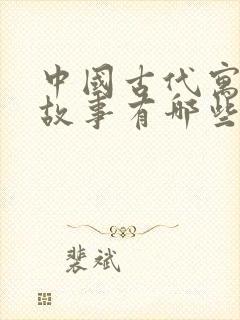 中國古代寓
故事有那些
裴斌